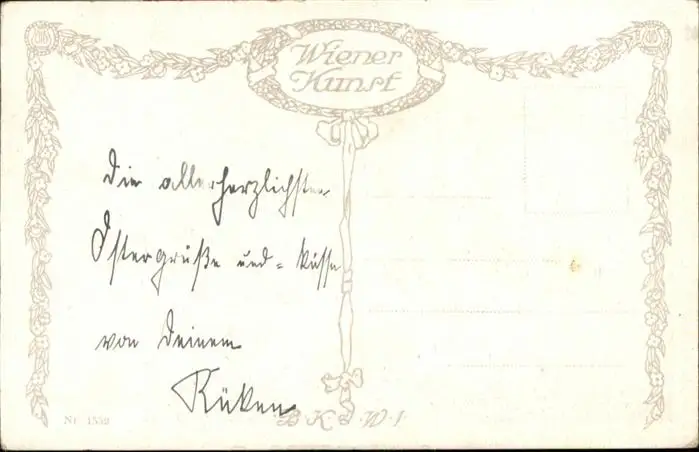 Wiener
Kunst
Die allerherzlichsten
Ostergrüße und = küsse
von Deinem
Nr. 1552
B·K·W·I